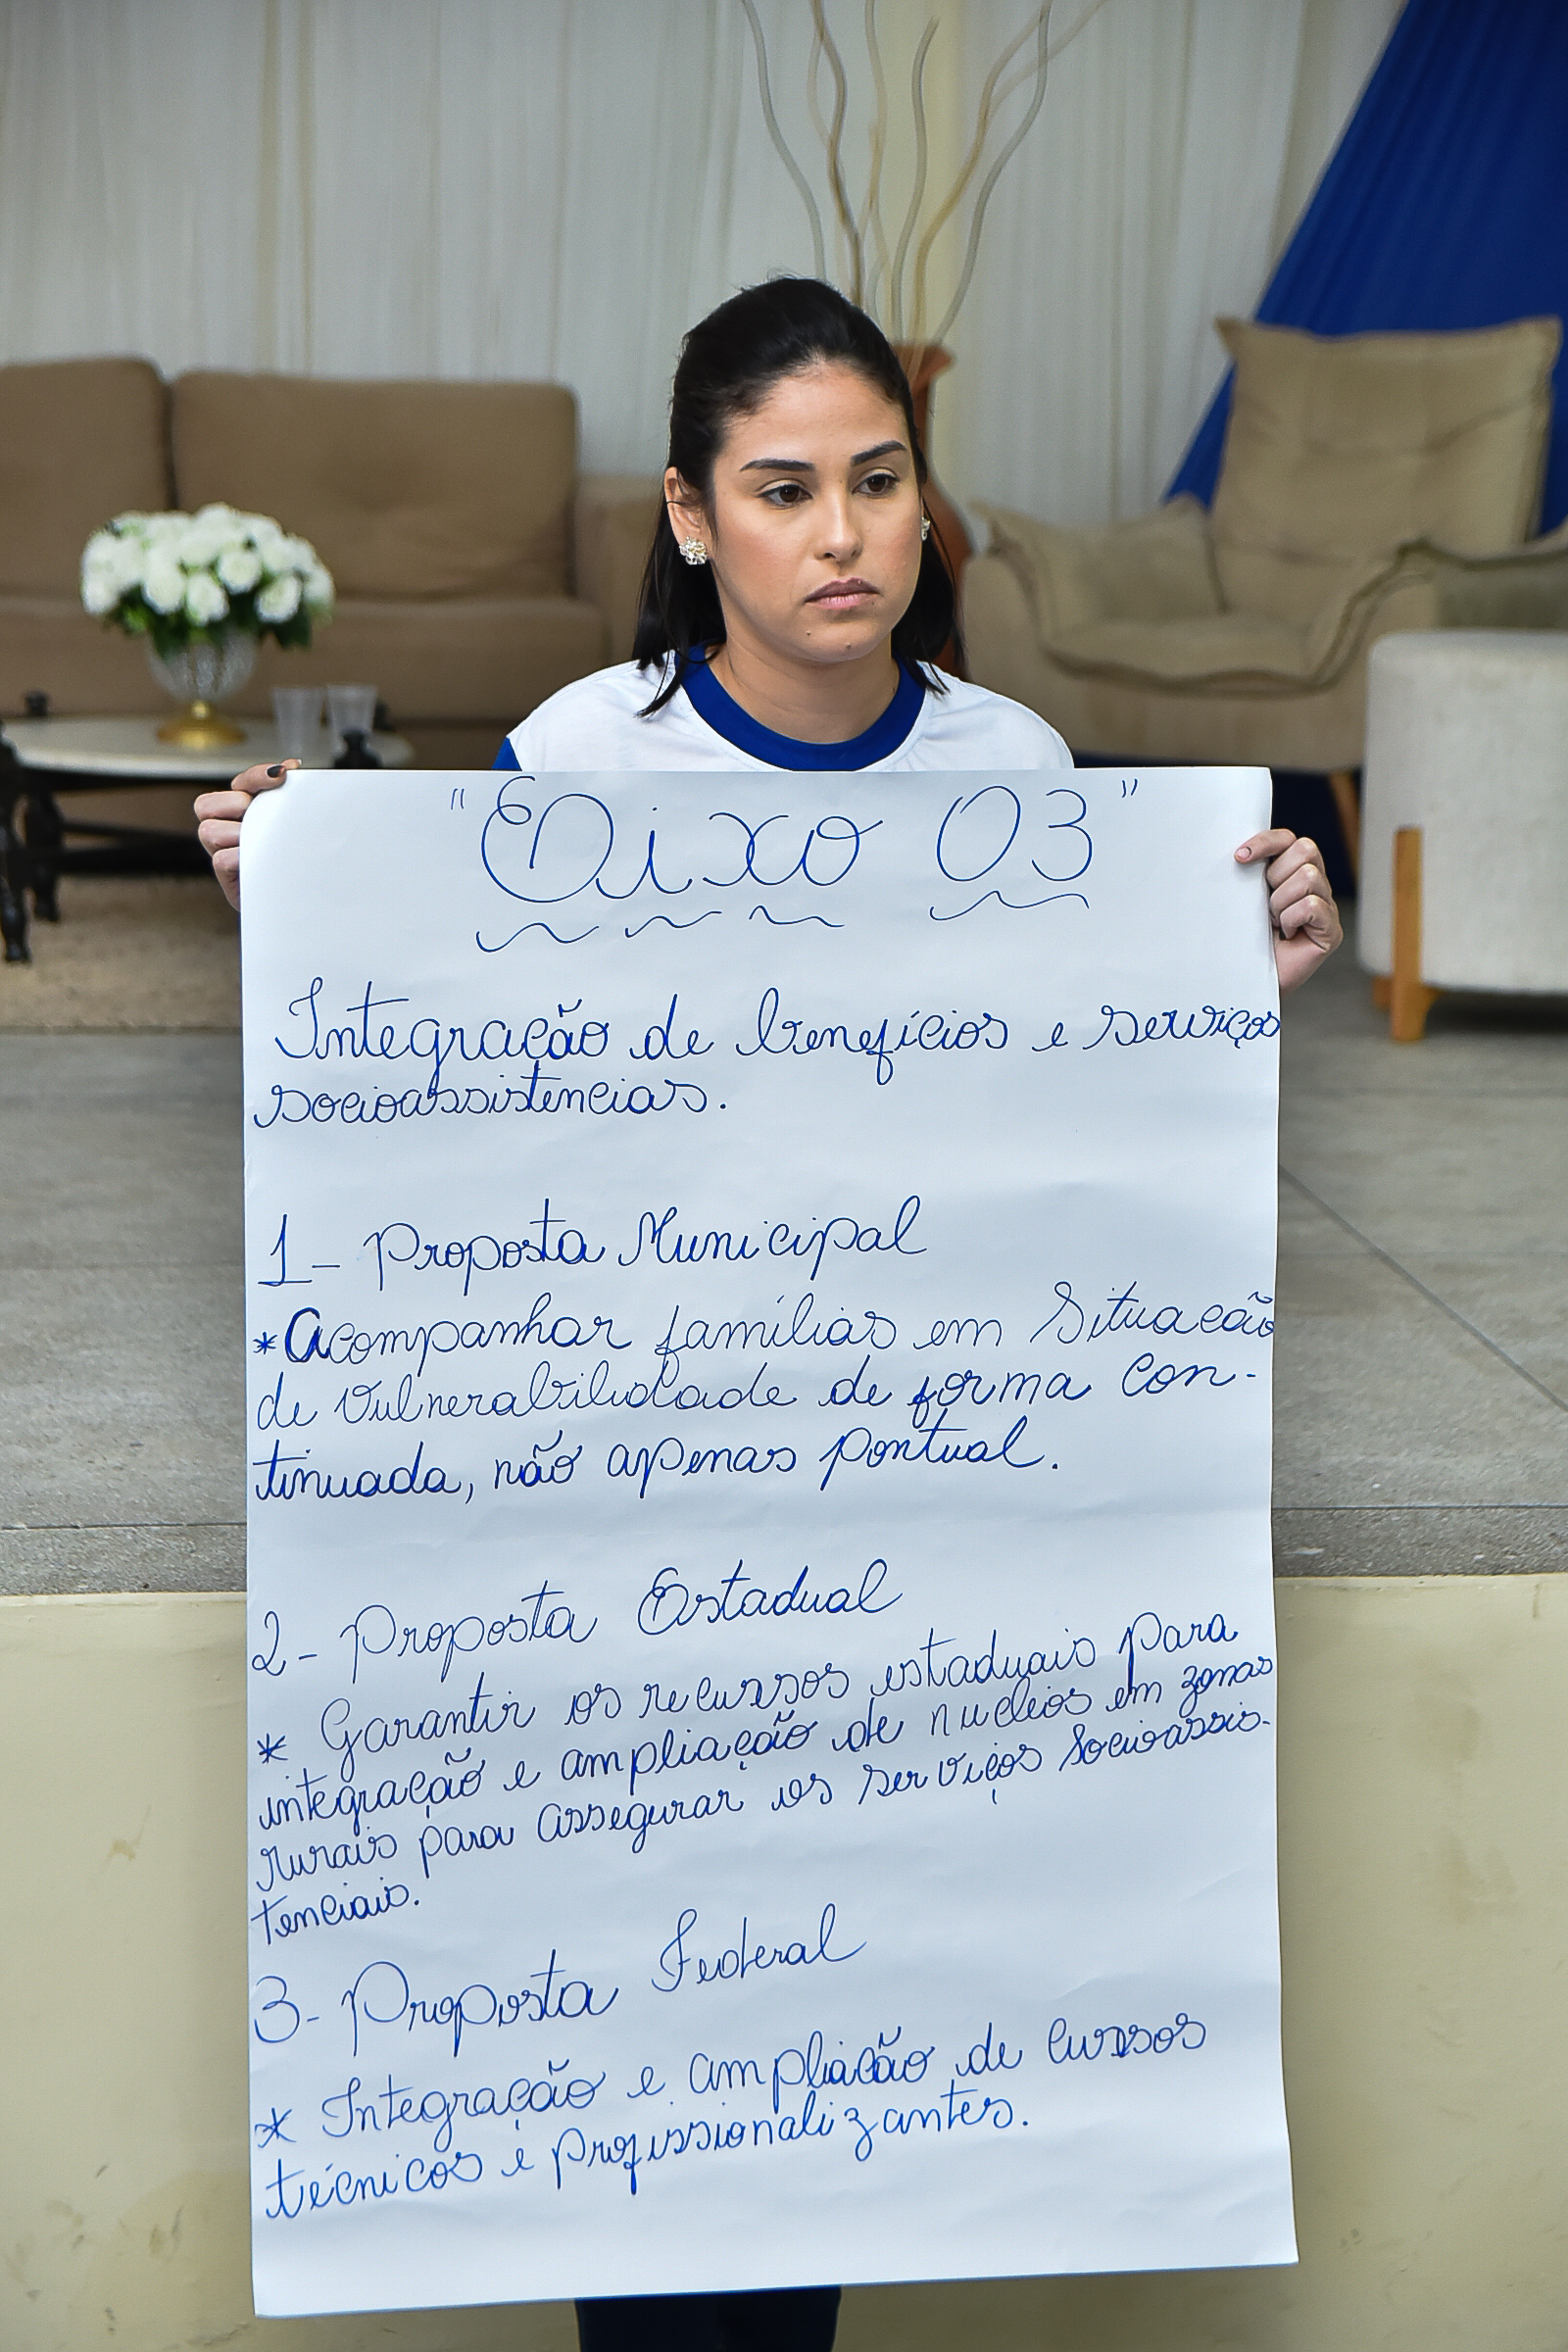 "Eixo 03"
Integração de benefícios e serviços
socioassistencias.
1- Proposta Municipal
*Acompanhar famílias em Situação
de Vulnerabilidade de forma con-
tinuada, não apenas pontual.
2- Proposta Estadual
* Garantir os recursos estaduais para
integração e ampliação de nucleos em zonas
rurais para assegurar os serviços Socioassis-
tenciais.
3- Proposta Federal
* Integração e ampliação de cursos
técnicos e profissionalizantes.